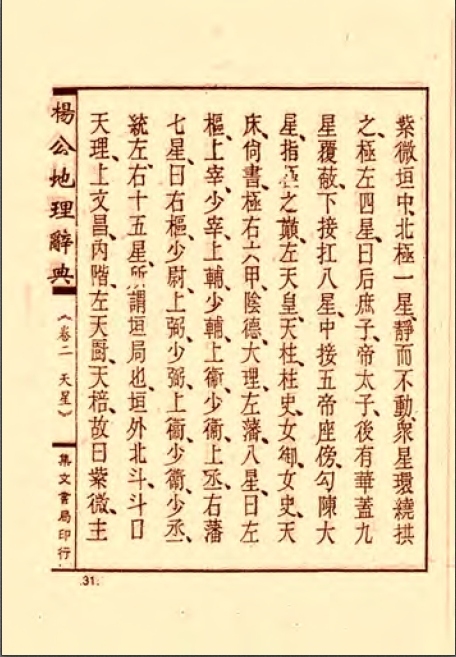 紫微垣中、北極一星、靜而不動、衆星環繞拱
之、極左四星曰后庶子、帝太子、後有華蓋九
星覆蔽、下接扛八星、中接五帝座、傍勾陳大
星、指極之巔、左天皇、天柱、柱史、女御、女史、天
床、尚書、極右六甲、陰德、大理、左藩八星曰左
樞、上宰、少宰、上輔、少輔、上衞、少衞、上丞、右藩
七星、曰右樞、少尉、上弼、少弼、上衞、少衞、少丞、
統左右十五星、所謂垣局也、垣外北斗、斗口
天理、上文昌、內階、左天厨、天棓、故曰紫微、主
楊公地理辭典
《卷二 天星》
集文書局印行
.31.